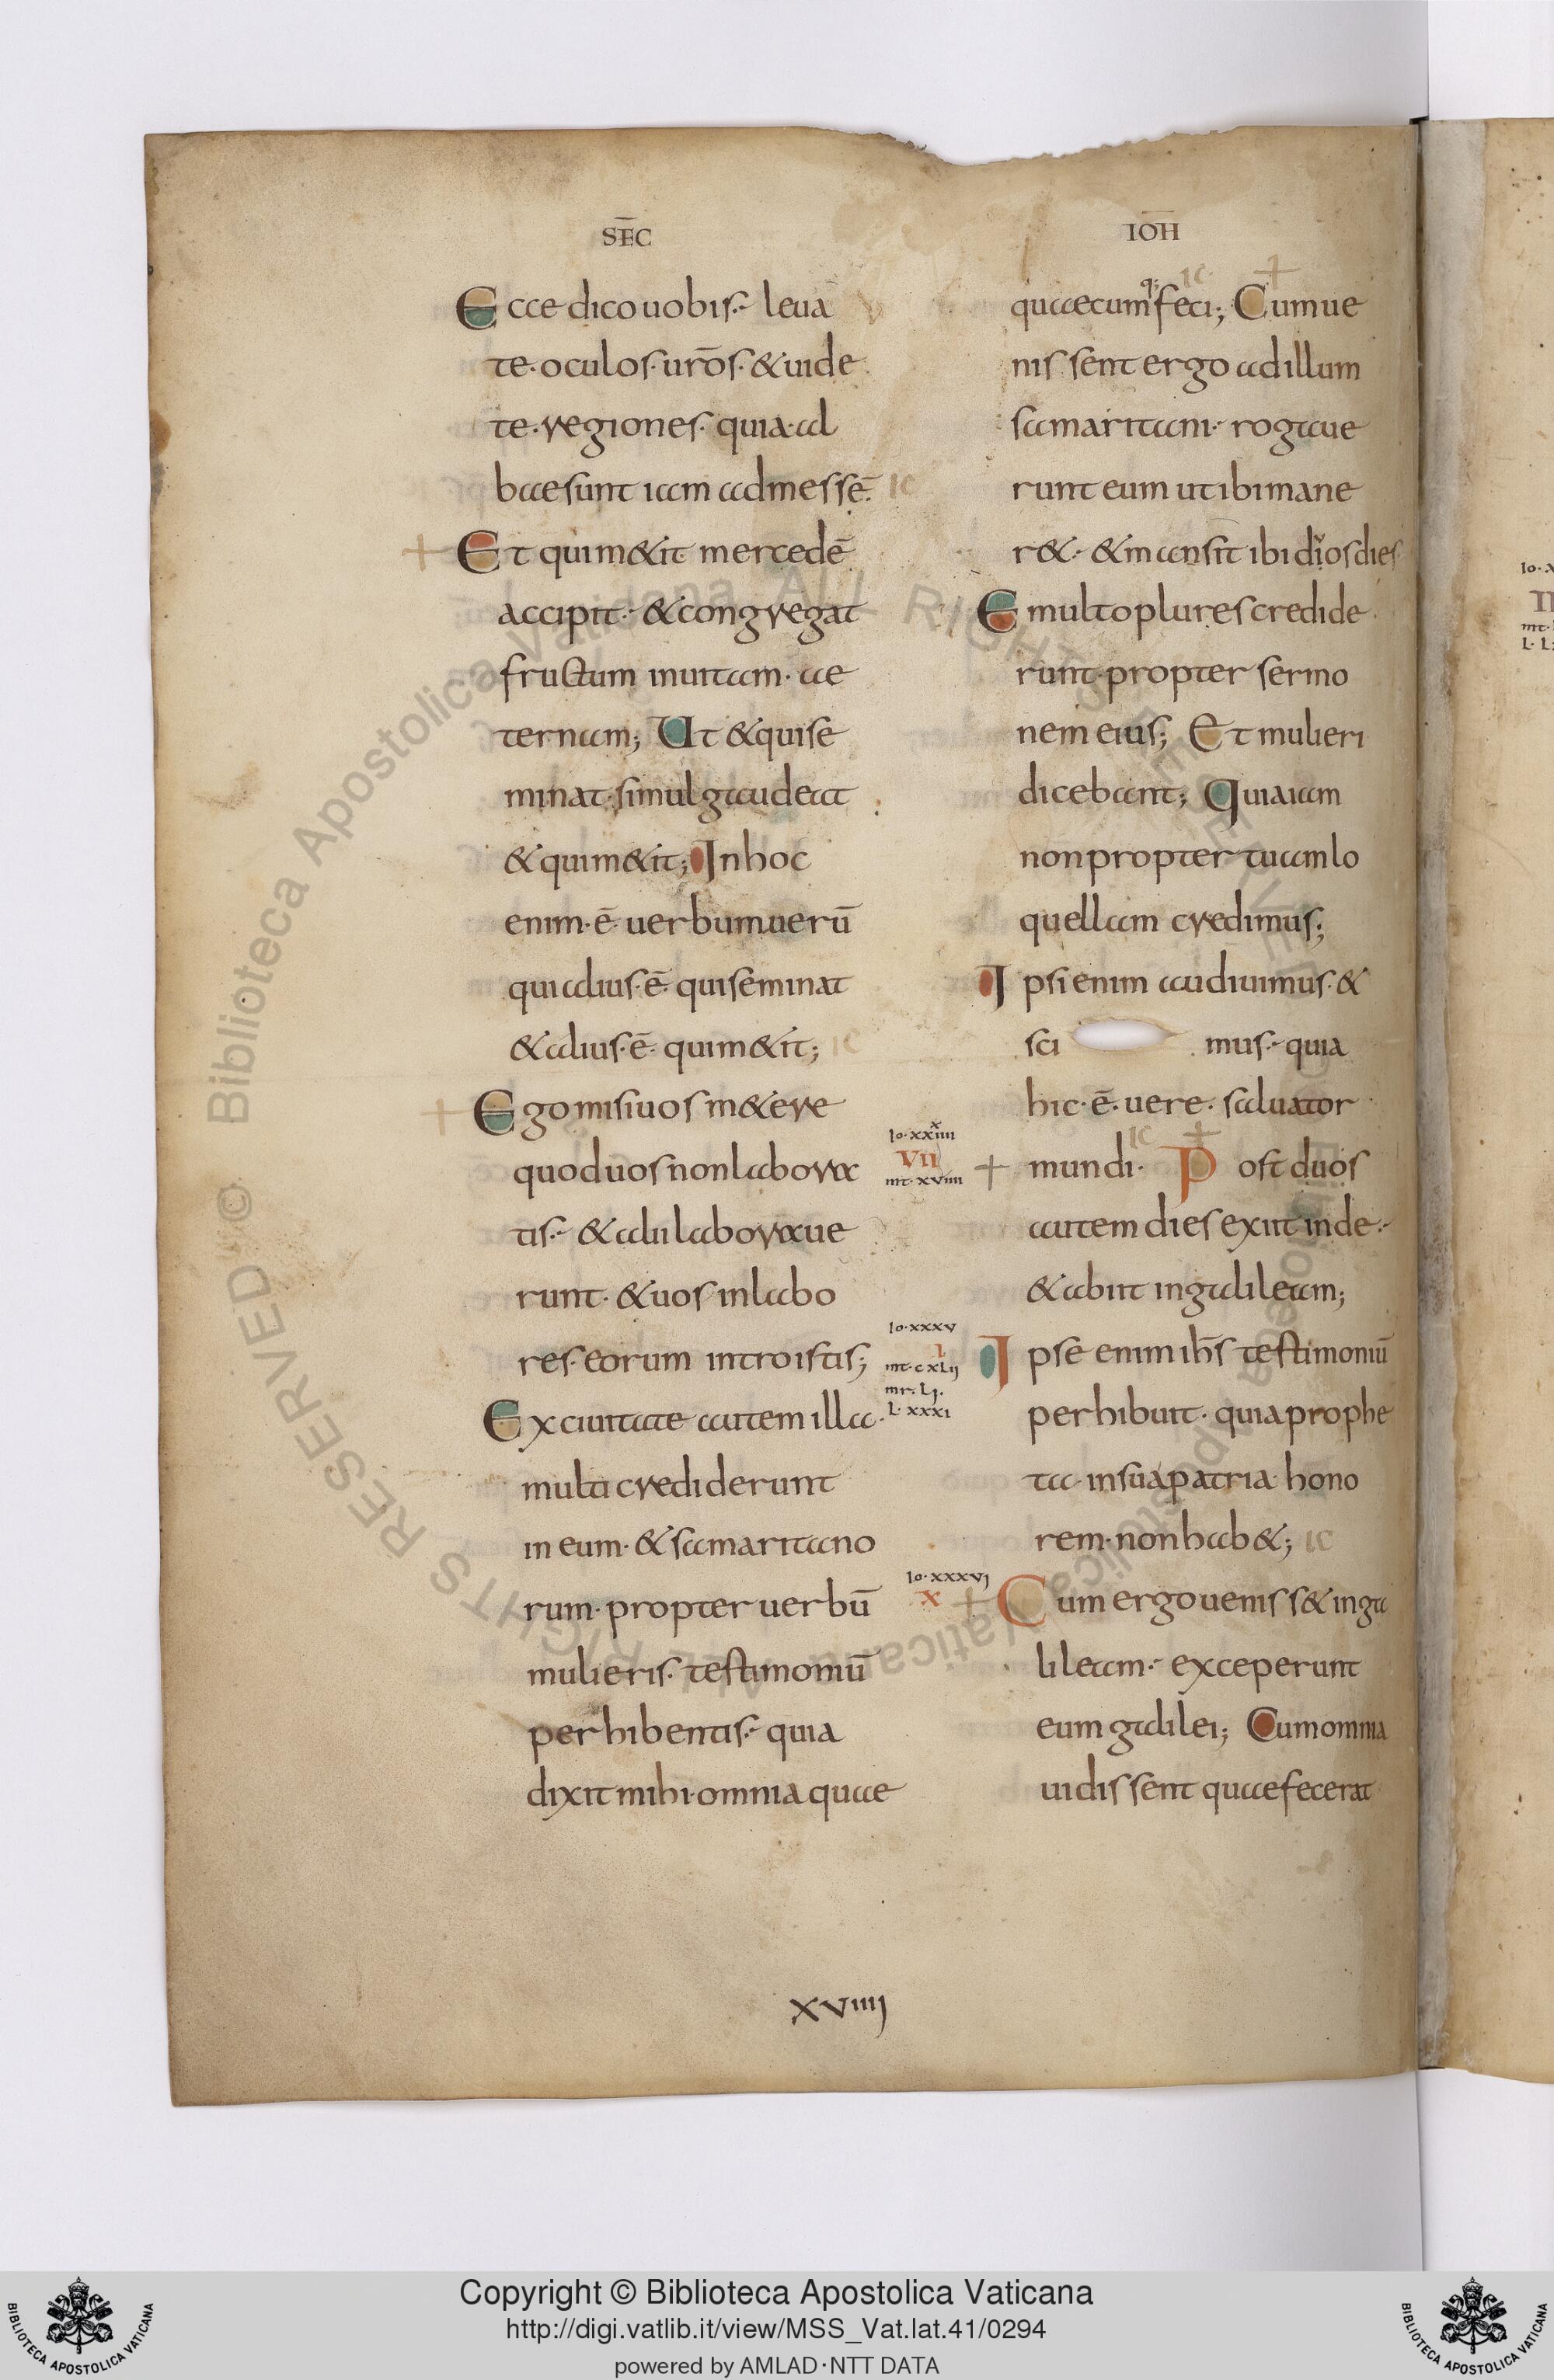 SEC̄
IOH̄
Ecce dico uobis· leua
te· oculos· uros̄· & uide
te· regiones· quia· al
bae sunt iam ad messē·
Et qui m&it mercedē
accipit· & congregat
fructum inuitam· ae
ternam; Ut & qui se
minat· simul gaudeat
& qui m&it; In hoc
enim· ē uerbum uerū
qui alius· ē· qui seminat
& alius· ē· qui m&it;
Ego misi uos m&ere
quod uos non labora
tis· & alii labora ue
runt· & uos in labo
res· eorum introistis;
Ex ciuitate autem illa·
multi crediderunt
in eum· & samaritano
rum· propter uerbū
mulieris· testimoniū
perhibentis· quia
dixit mihi· omnia quae
quaecumq; feci; Cum ue
nissent ergo ad illum
samaritani· rogaue
runt eum ut ibi mane
r&· & mansit ibi duos dies
E multo plures credide
runt· propter sermo
nem eius; Et mulieri
dicebant; Quia iam
non propter tuam lo
quellam credimus;
Ipsi enim audiuimus· &
sci mus· quia
hic· ē· uere· saluator
mundi· Post duos
autem dies exiit inde·
& abiit in galileam;
Ipse enim ihs̄ testimoniū
perhibuit· quia prophe
ta· in sua patria hono
rem· non hab&;
Cum ergo ueniss& in ga
lileam· exceperunt
eum galilei; Cum omnia
uidissent quae fecerat
Io·xxxiiii
VII
mt·xviiii
Io·xxxv
I
mt·cxlij
mr·Lj·
L·xxxi
Io·xxxvj
X
xviiij
© Biblioteca Apostolica Vaticana ALL RIGHTS RESERVED
Copyright © Biblioteca Apostolica Vaticana
http://digi.vatlib.it/view/MSS_Vat.lat.41/0294
powered by AMLAD·NTT DATA
BIBLIOTECA APOSTOLICA VATICANA
BIBLIOTECA APOSTOLICA VATICANA